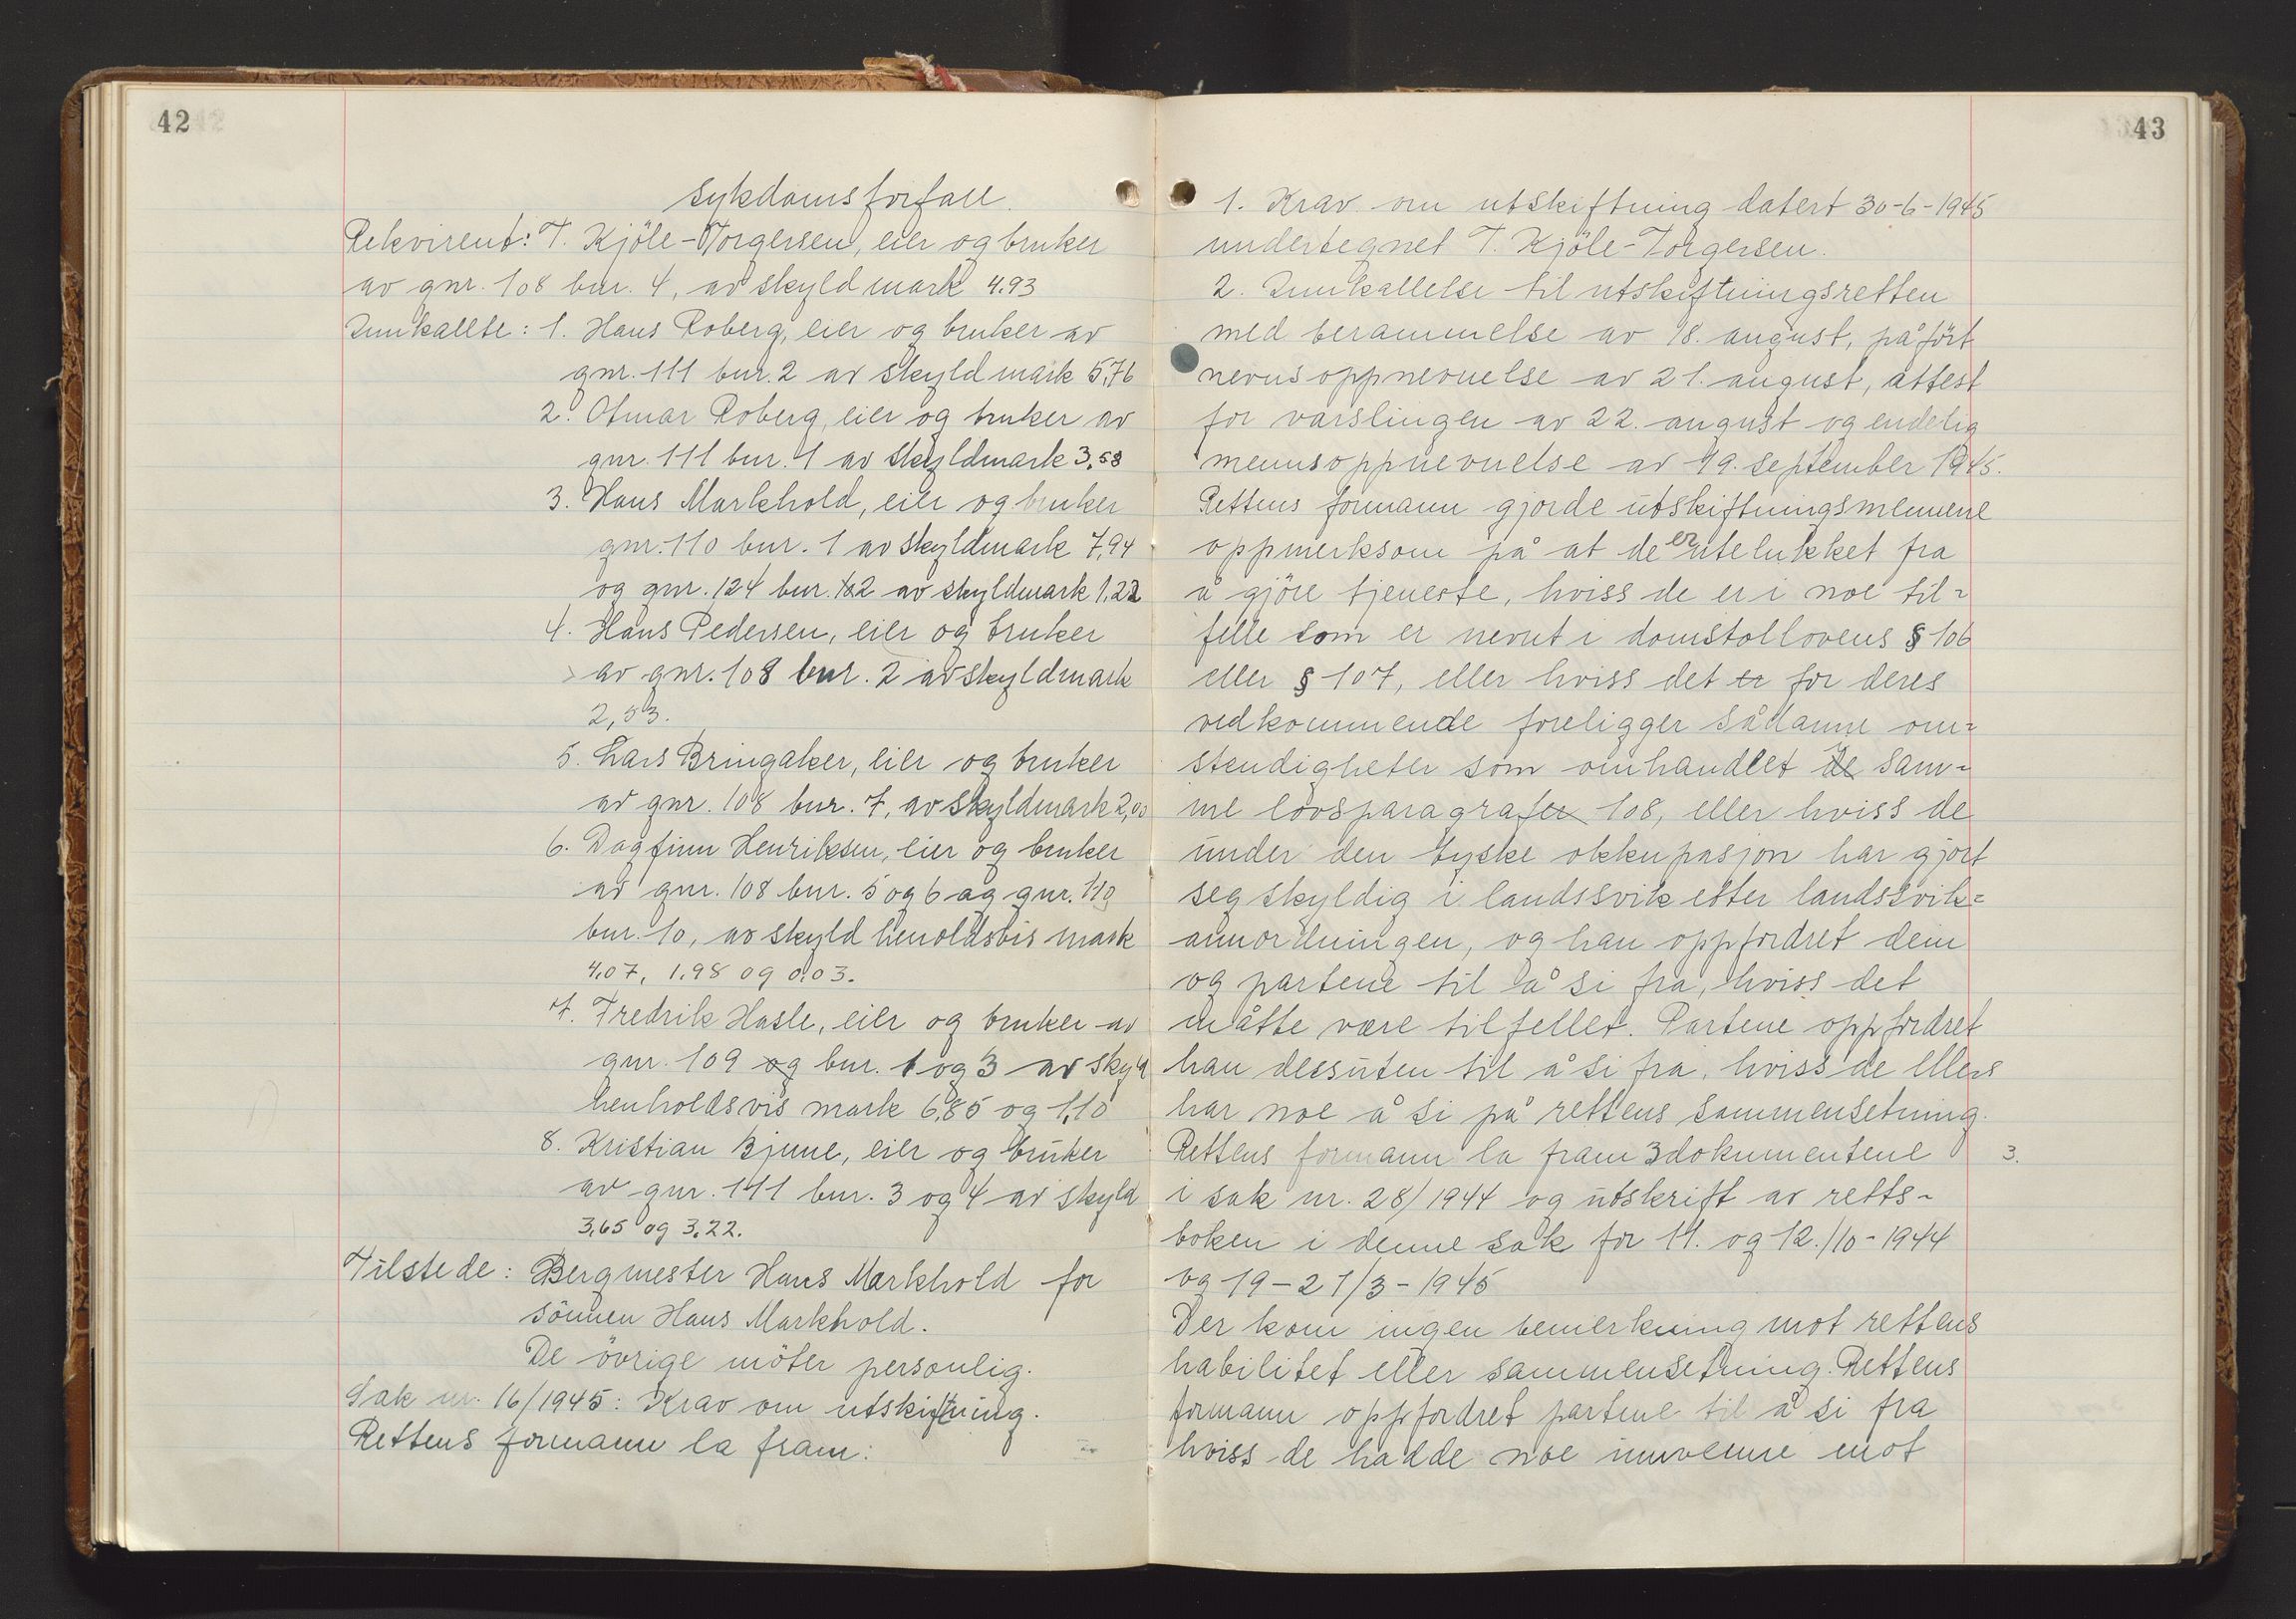 42
sykdomsforfall.
Rekvirent: T. Kjöle-Torgersen, eier og bruker
av gnr. 108 bnr. 4, av skyld mark 4.93
Innkallte: 1. Hans Roberg, eier og bruker av
gnr. 111 bnr. 2 av skyld mark 5,76
2. Otmar Roberg, eier og bruker av
gnr. 111 bnr. 1 av skyldmark 3,58
3. Hans Markhold, eier og bruker
gnr. 110 bnr. 1 av skyldmark 7,94
og gnr. 124 bnr. 2 av skyldmark 1,22
4. Hans Pedersen, eier og bruker
av gnr. 108 bnr. 2 av skyldmark
2,53.
5. Lars Bringaker, eier og bruker
av gnr. 108 bnr. 7, av skyldmark 2,00
6. Dagfinn Henriksen, eier og bruker
av gnr. 108 bnr. 5 og 6 ag gnr. 110
bnr. 10, av skyld henoldsvis mark
4,07, 1,98 og 0,03.
7. Fredrik Hasle, eier og bruker av
gnr. 109 og bnr. 1 og 3 av skyld
henholdsvis mark 6,85 og 1,10
8. Kristian Bjune, eier og bruker
av gnr. 111 bnr. 3 og 4 av skyld
3,65 og 3,22.
Tilstede: Bergmester Hans Markhold for
sönnen Hans Markhold.
De övrige möter personlig.
Sak nr. 16/1945: Krav om utskiftning.
Rettens formann la fram:
43
1. Krav om utskiftning datert 30-6-1945
undertegnet T. Kjöle-Torgersen.
2. Innkallelse til utskiftningsretten
med berammelse av 18. august, påfört
nevnsoppnevnelse av 21. august, attest
for varslingen av 22. august og endelig
mennsoppnevnelse av 19. september 1945.
Rettens formann gjorde utskiftningsmennene
oppmerksom på at de er utelukket fra
å gjöre tjeneste, hviss de er i noe til=
felle som er nevnt i domstollovens § 106
eller § 107, eller hviss det er for deres
vedkommende foreligger sådanne om=
stendigheter som omhandlet de sam=
me lovsparagrafer 108, eller hviss de
under den tyske okkupasjon har gjort
seg skyldig i landssvik etter landssvik=
annordningen, og han oppfordret dem
og partene til å si fra, hviss det
måtte være tilfellet. Partene oppfordret
han dessuten til å si fra, hviss de ellers
har noe å si på rettens sammensetning.
Rettens formann la fram 3 dokumentene 3.
i sak nr. 28/1944 og utskrift av retts-
boken i denne sak for 11. og 12./10-1944
og 19-21/3-1945
Der kom ingen bemerkning mot rettens
habilitet eller sammensetning. Rettens
formann oppfordret partene til å si fra
hviss de hadde noe innvenne mot